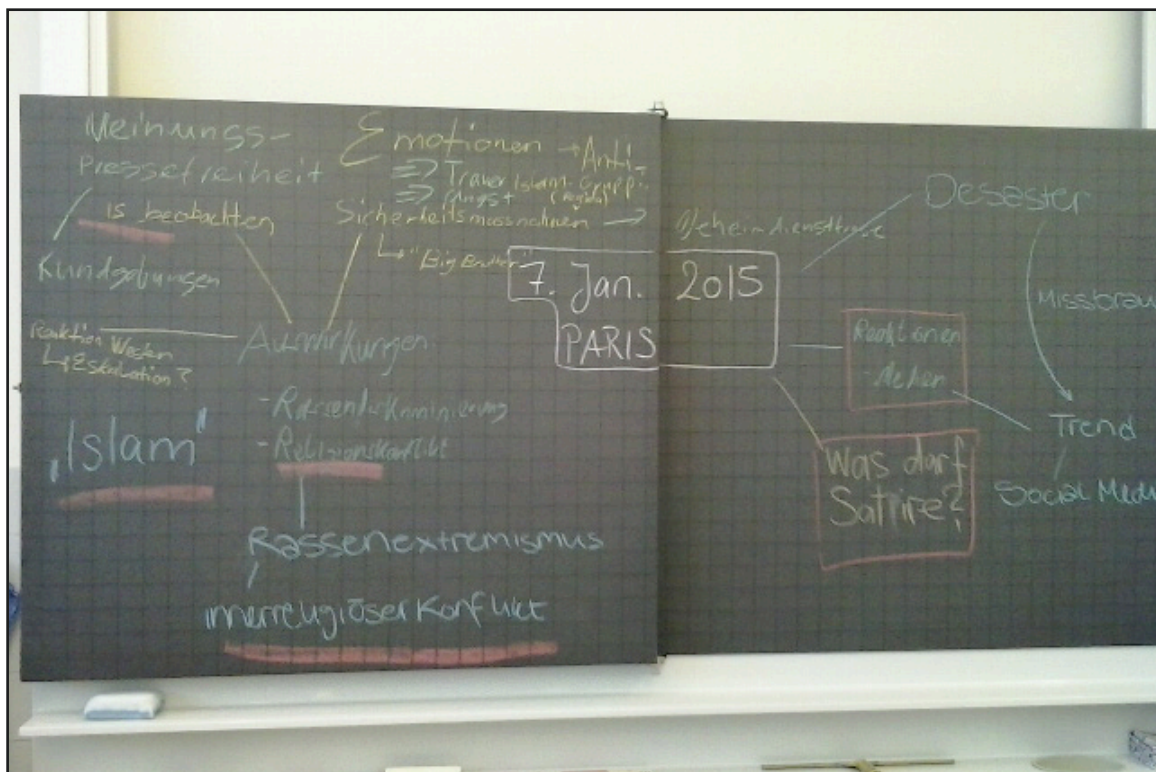 Meinungs-
Pressefreiheit
IS beobachten
Kundgebungen
Reaktion Westen
↳ Eskalation?
"Islam"
Emotionen → Anti-
⇒ Trauer Islam-
⇒ Angst (Pegida)
Sicherheitsmassnahmen →
↳ "Big Brother"
Auswirkungen
- Rassendiskriminierung
- Religionskonflikt
Rassenextremismus
innerreligiöser Konflikt
7. Jan. 2015
PARIS
Desaster
Missbrau
Reaktionen
Trend
Social Medi
Was darf
Satire?